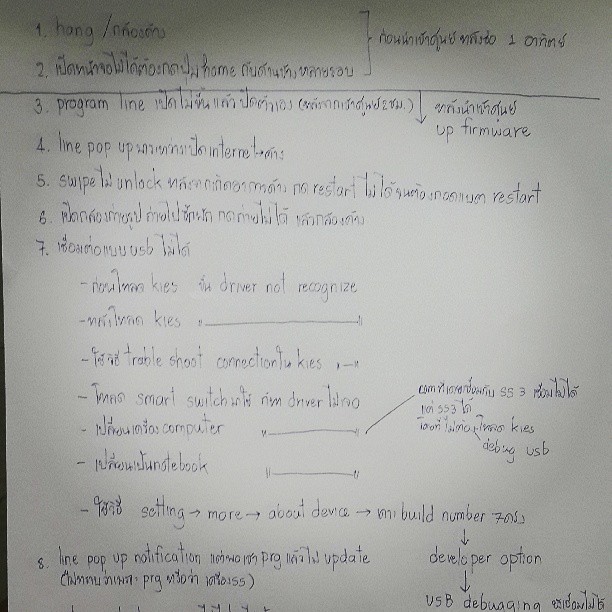 1. hang / กล้องค้าง
ก่อนนำเข้าศูนย์ หลังซื้อ 1 อาทิตย์
2. เปิดหน้าจอไม่ได้ต้องกดปุ่ม home กับด้านข้างหลายรอบ
3. program line เปิดไม่ขึ้นแล้วปิดตัวเอง (หลังจากเข้าศูนย์ 2 ชม.)
หลังนำเข้าศูนย์
up firmware
4. line pop up ระหว่างเปิด internet → ค้าง
5. swipe ไม่ unlock หลังจากเกิดอาการค้าง กด restart ไม่ได้จนต้องถอดแบต restart
6. เปิดกล้องถ่ายรูป ถ่ายไปซักพัก กดถ่ายไม่ได้ แล้วกล้องค้าง
7. เชื่อมต่อแบบ usb ไม่ได้
- ก่อนโหลด kies ขึ้น driver not recognize
- หลังโหลด kies "————"
- ใช้วิธี trable shoot connection ใน kies "—"
- โหลด smart switch มาใช้ ก็หา driver ไม่เจอ
- เปลี่ยนเครื่อง computer "————"
คอมที่เคยเชื่อมกับ SS 3 เชื่อมไม่ได้
แต่ SS3 ได้
โดยที่ไม่ต้องโหลด kies
debug usb
- เปลี่ยนเป็น notebook "————"
- ใช้วิธี setting → more → about device → เคาะ build number 7 ครั้ง
↓
developer option
↓
USB debugging
8. line pop up notification แต่พอเข้า prg แล้วไม่ update
(ไม่ทราบว่าเพราะ prg หรือว่า เครื่อง ss)